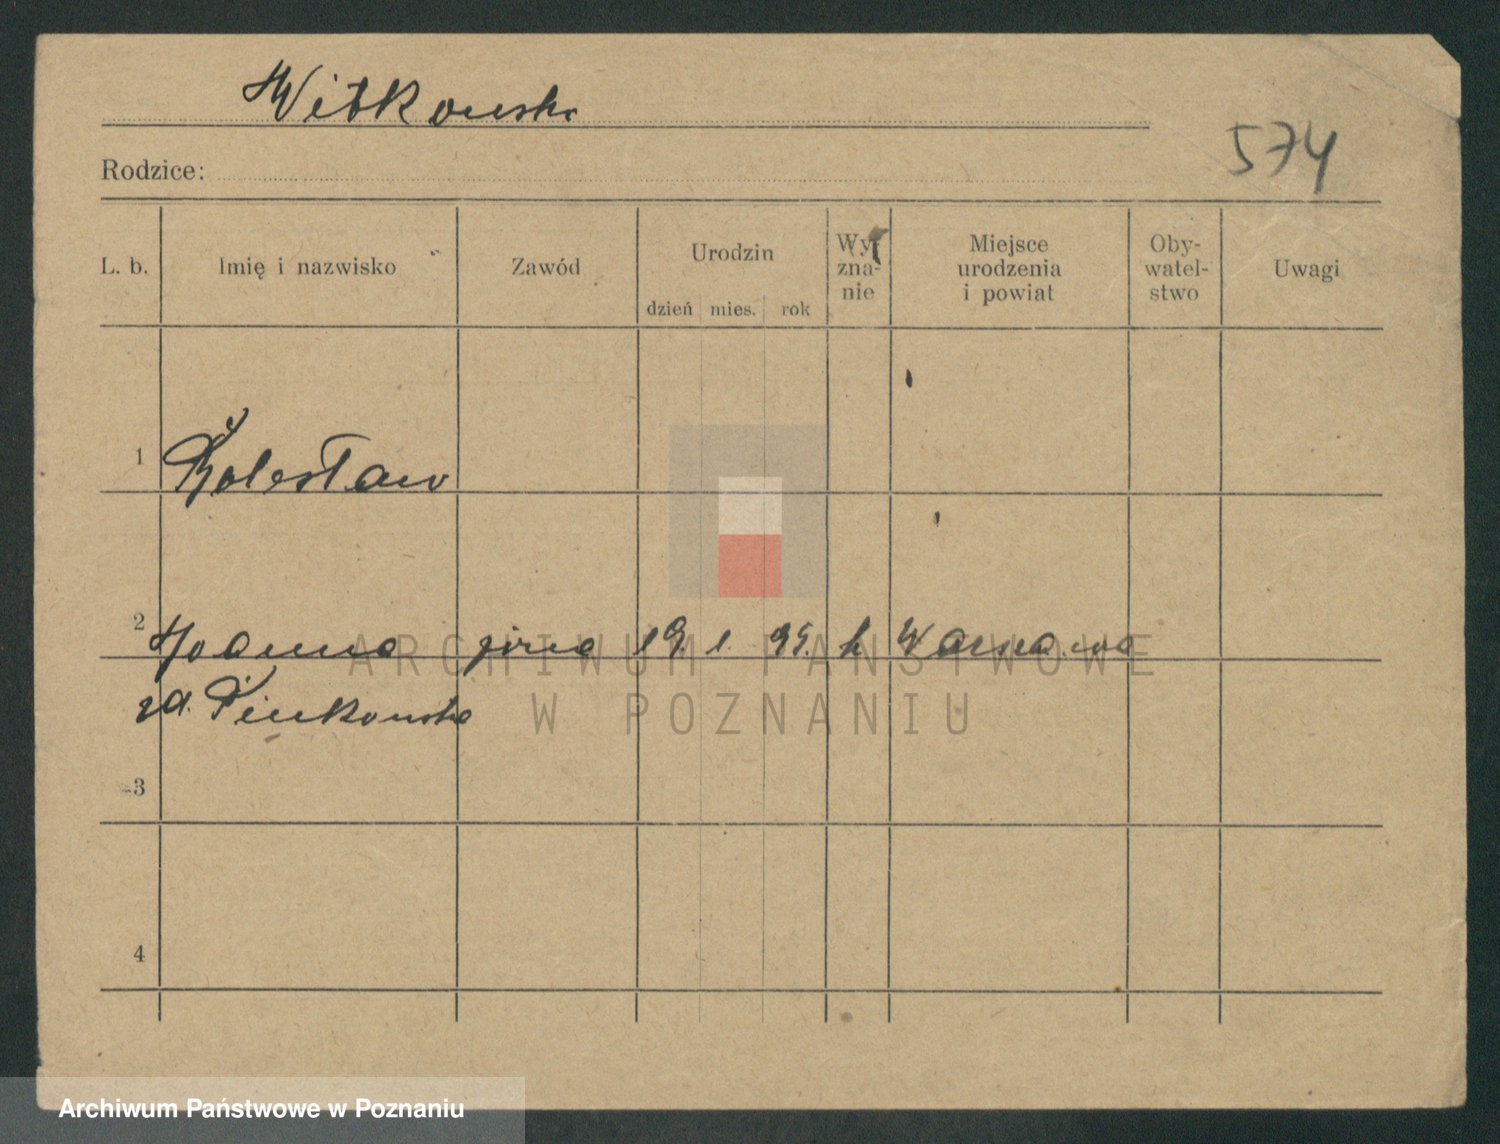 Witkowska
574
Rodzice:
L. b. Imię i nazwisko Zawód Urodzin dzień mies. rok Wyzna-nie Miejsce urodzenia i powiat Oby-watel-stwo Uwagi
1 Bolesław
2 Joanna żona 19. 1. 95. k Warszawa
zd. Pieńkowska
3
4
ARCHIWUM PAŃSTWOWE
W POZNANIU
Archiwum Państwowe w Poznaniu